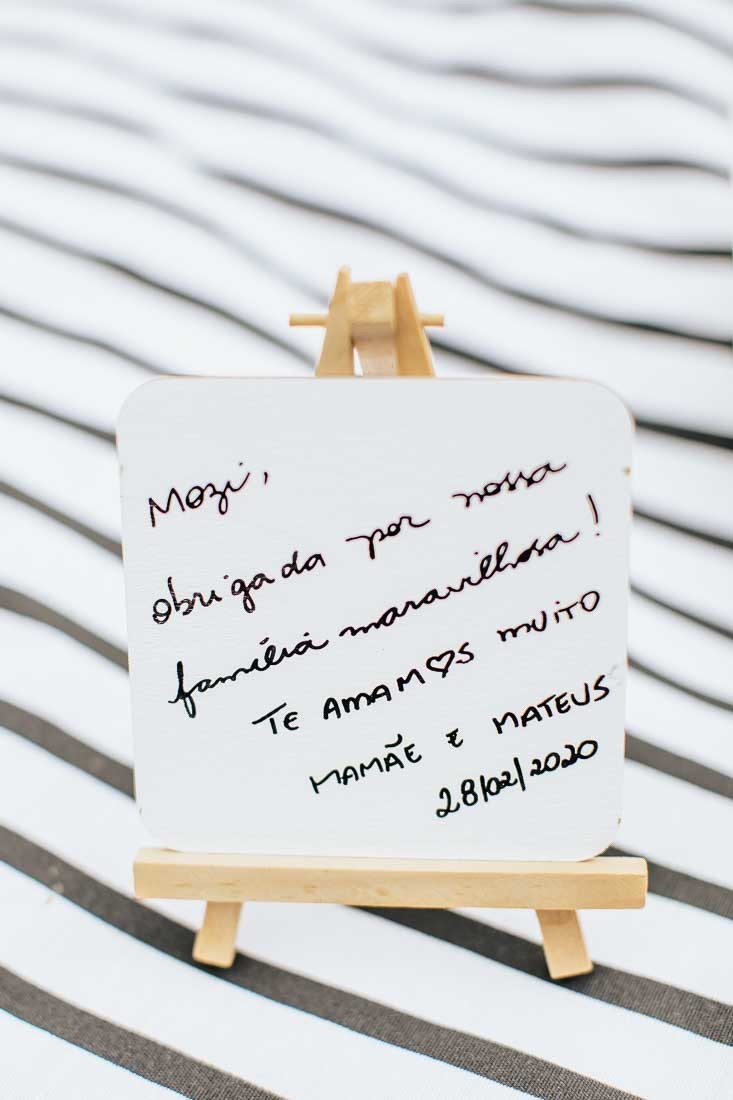 Mozi,
obrigada por nossa
família maravilhosa!
TE AMAM♡S MUITO
MAMÃE E MATEUS
28/02/2020